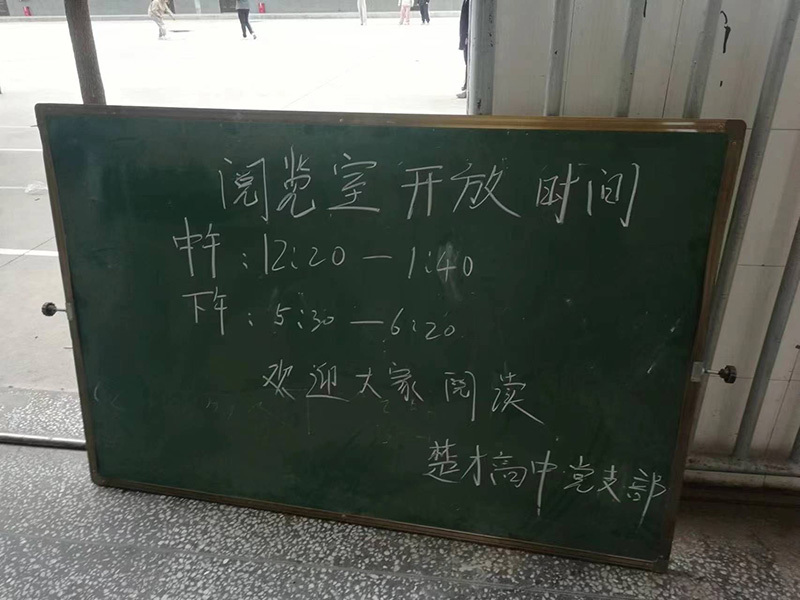 阅览室开放时间
中午：12:20—1:40
下午：5:30—6:20
欢迎大家阅读
楚才高中党支部